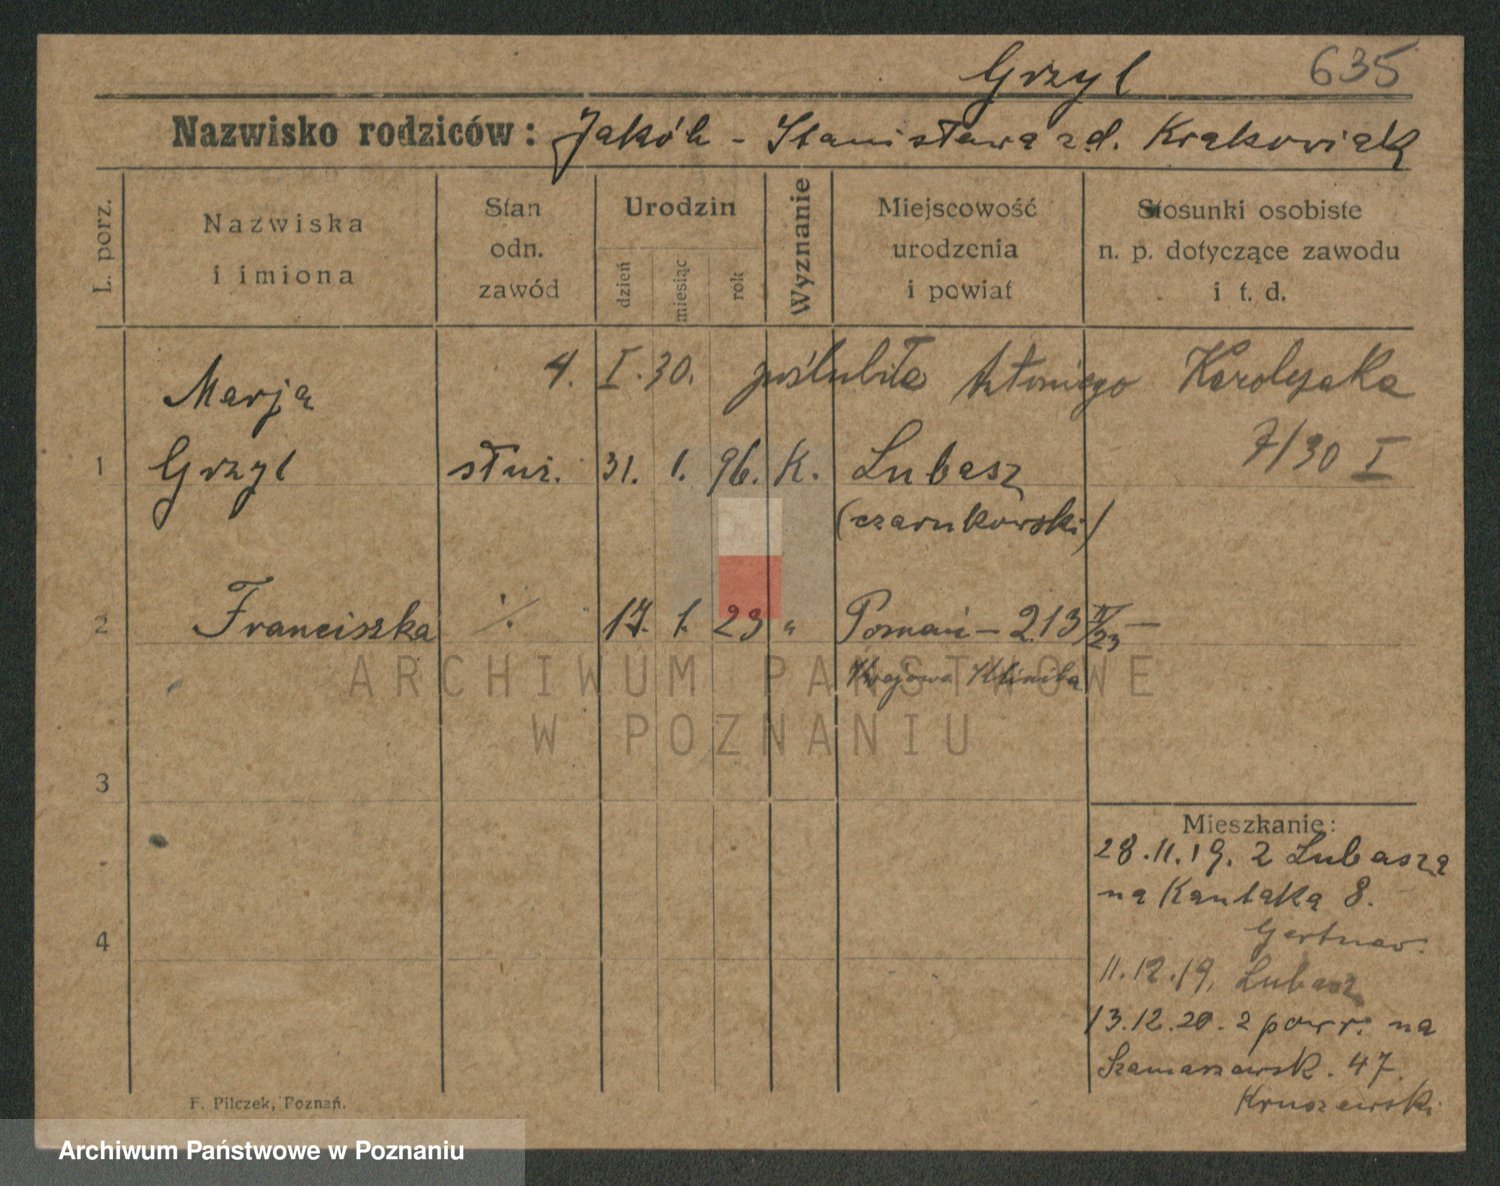 Grzyl 635
Nazwisko rodziców: Jakób - Stanisława zd. Krakowiak
L. porz.
Nazwiska
i imiona
Stan
odn.
zawód
Urodzin
dzień
miesiąc
rok
Wyznanie
Miejscowość
urodzenia
i powiat
Stosunki osobiste
n. p. dotyczące zawodu
i t. d.
4. I. 30. poślubiła Antoniego Karolczaka
7/30 I
Marja
1 Grzyl służ. 31. 1. 96. K. Lubasz
(czarnkowski)
2 Franciszka ·/. 17. 1. 23 " Poznań - 213 II/23 -
Krajowa Klinika
ARCHIWUM PAŃSTWOWE
W POZNANIU
3
4
Mieszkanie:
28.11.19. z Lubasza
na Kantaka 8.
Gertner
11.12.19. Lubasz
13.12.20. z powr. na
Szamarzewsk. 47.
Kruszewski
F. Pilczek, Poznań.
Archiwum Państwowe w Poznaniu